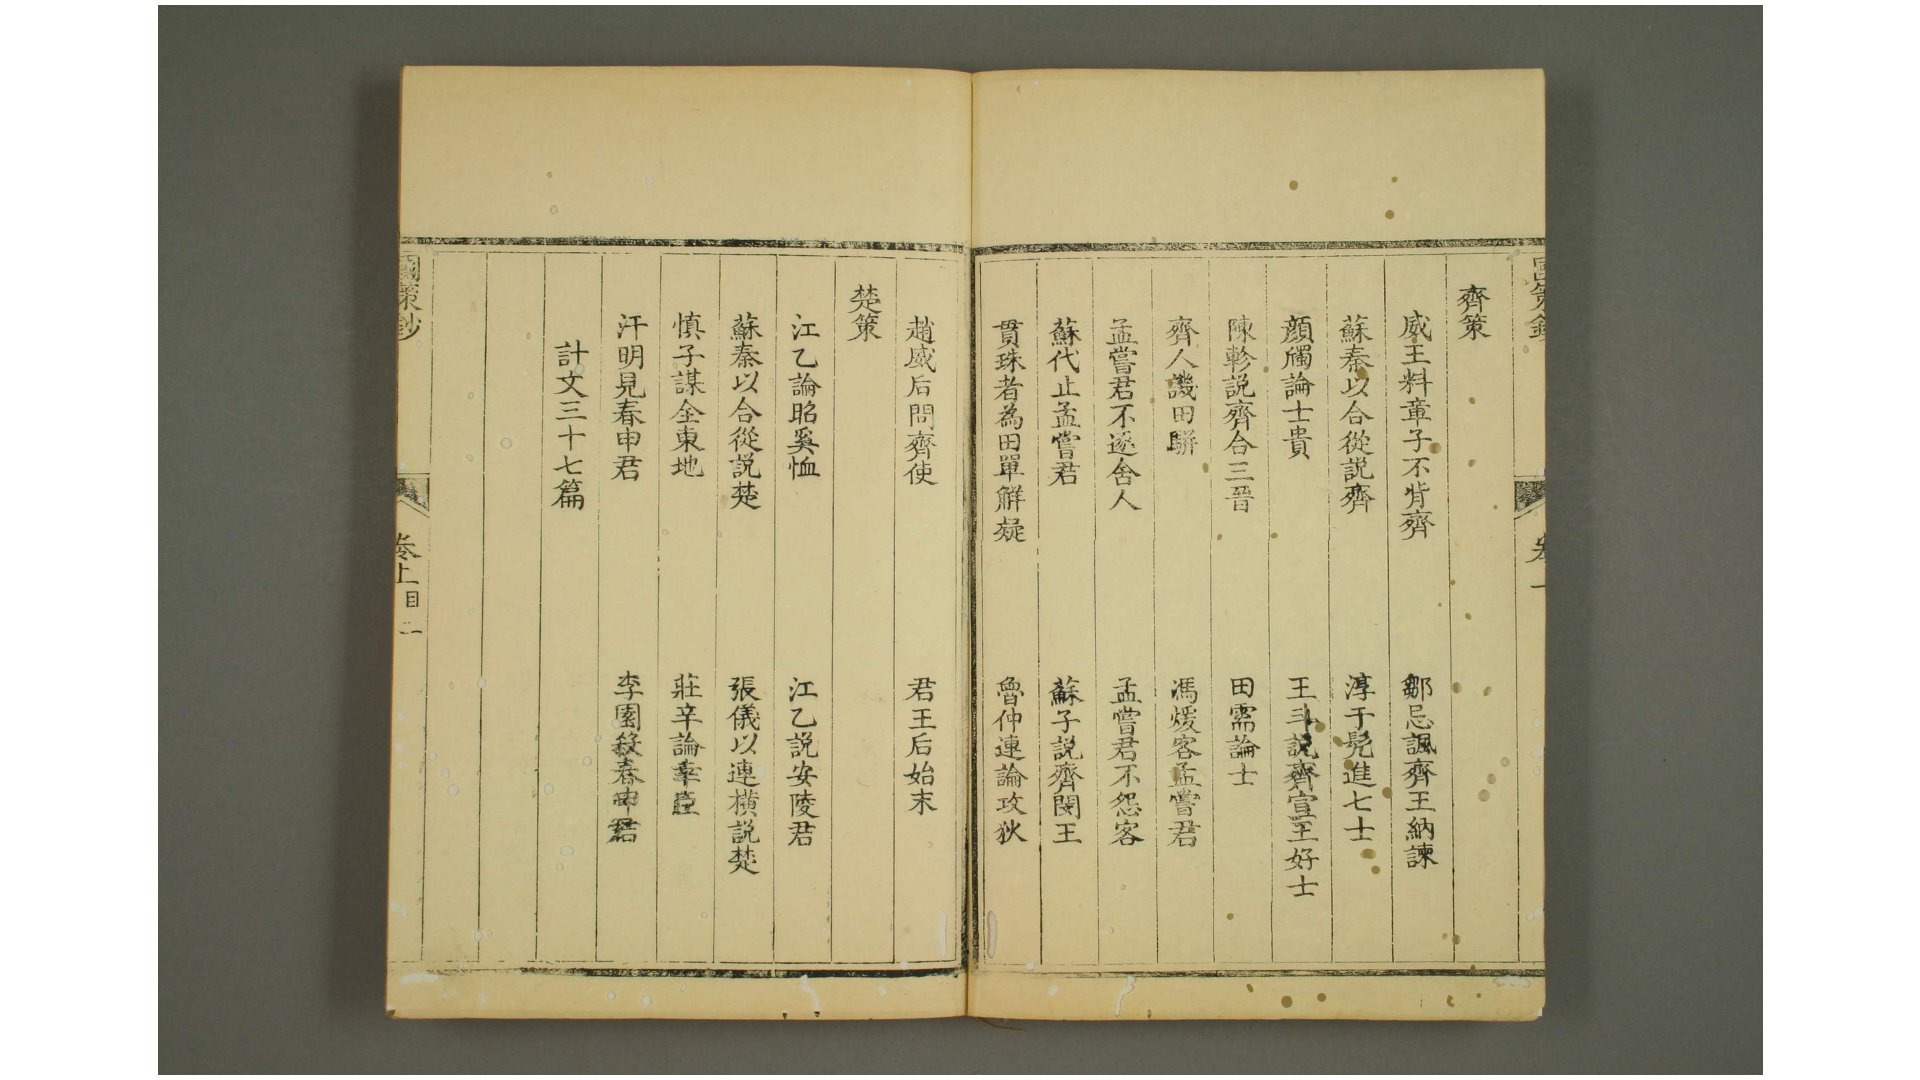 齊策
威王料章子不背齊　鄒忌諷齊王納諫
蘇秦以合從說齊　淳于髡進七士
顏斶論士貴　王斗說齊宣王好士
陳軫說齊合三晉　田需論士
齊人譏田駢　馮煖客孟嘗君
孟嘗君不逐舍人　孟嘗君不怨客
蘇代止孟嘗君　蘇子說齊閔王
貫珠者為田單解疑　魯仲連論攻狄
趙威后問齊使　君王后始末
楚策
江乙論昭奚恤　江乙說安陵君
蘇秦以合從說楚　張儀以連橫說楚
慎子謀全東地　莊辛論幸臣
汗明見春申君　李園殺春申君
計文三十七篇
國策鈔　卷上　目　二